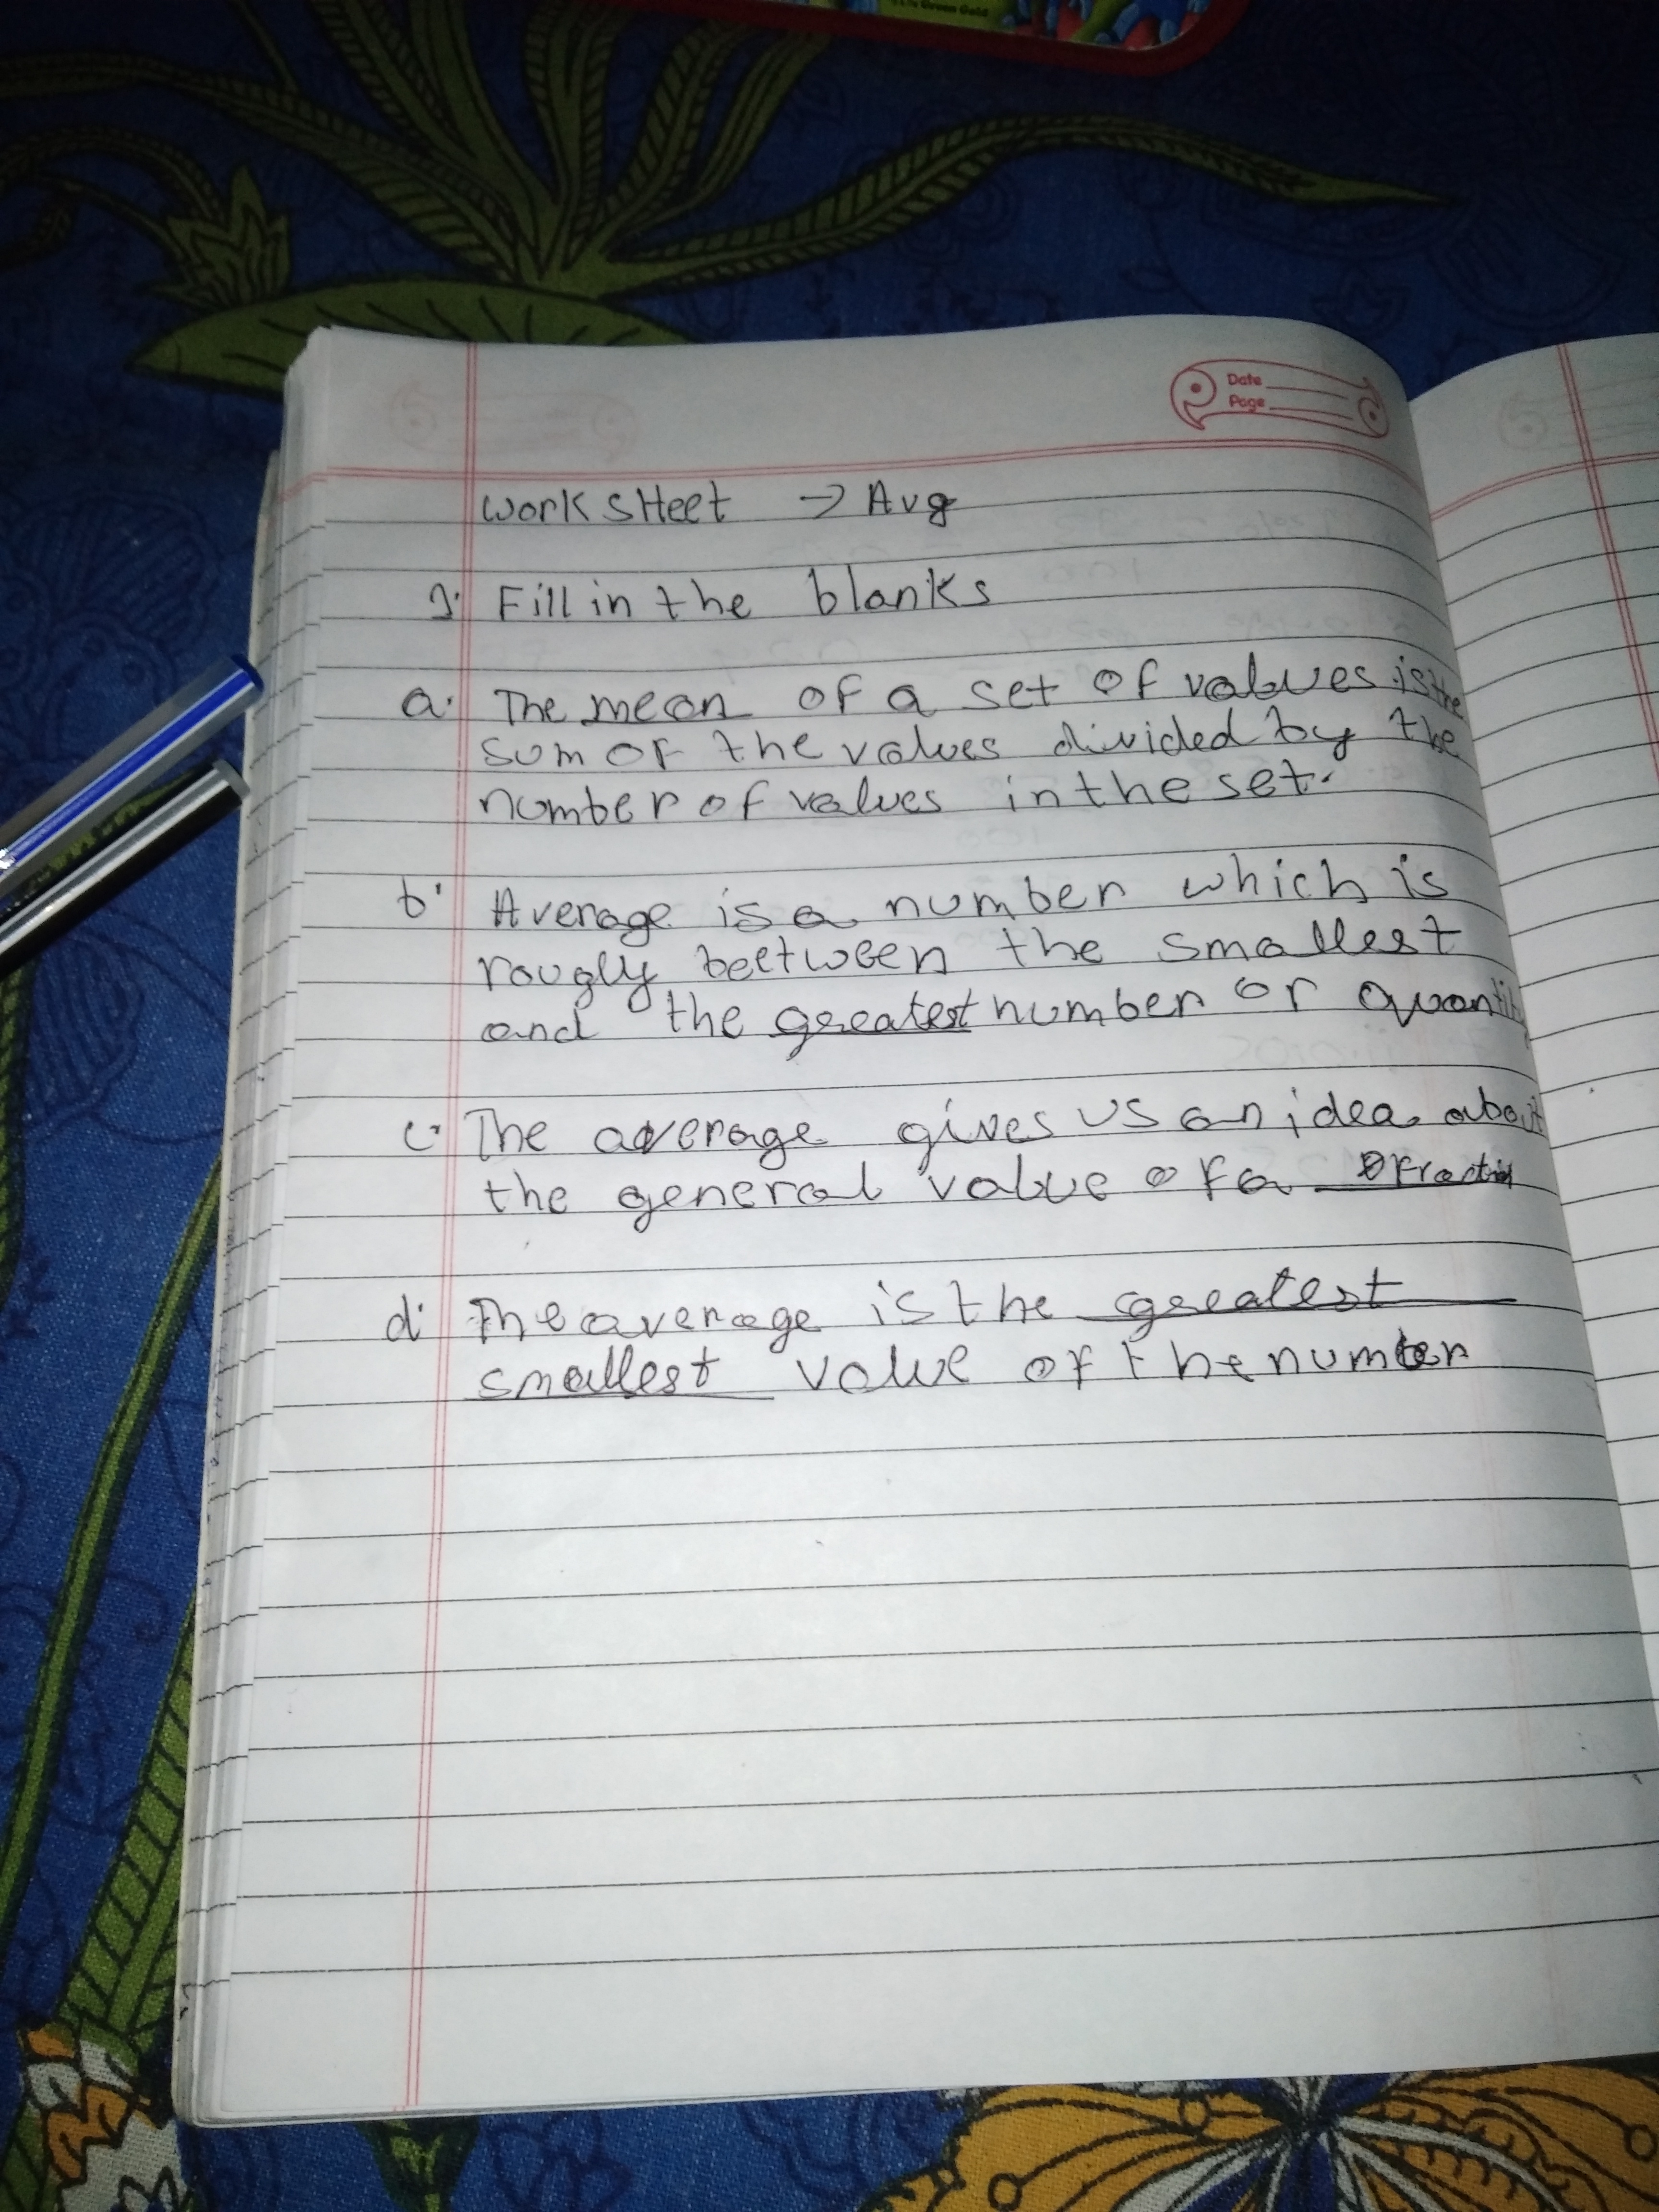 Green Gold
Date
Page
Work sHeet → Avg
1. Fill in the blanks
a. The mean of a set of values is the
sum of the values divided by the
number of values in the set.
b. Average is a number which is
rougly beetween the smallest
and the greatest number or quantity
c. The average gives us an idea about
the general value of a fraction
d. The average is the greatest
smallest value of the number